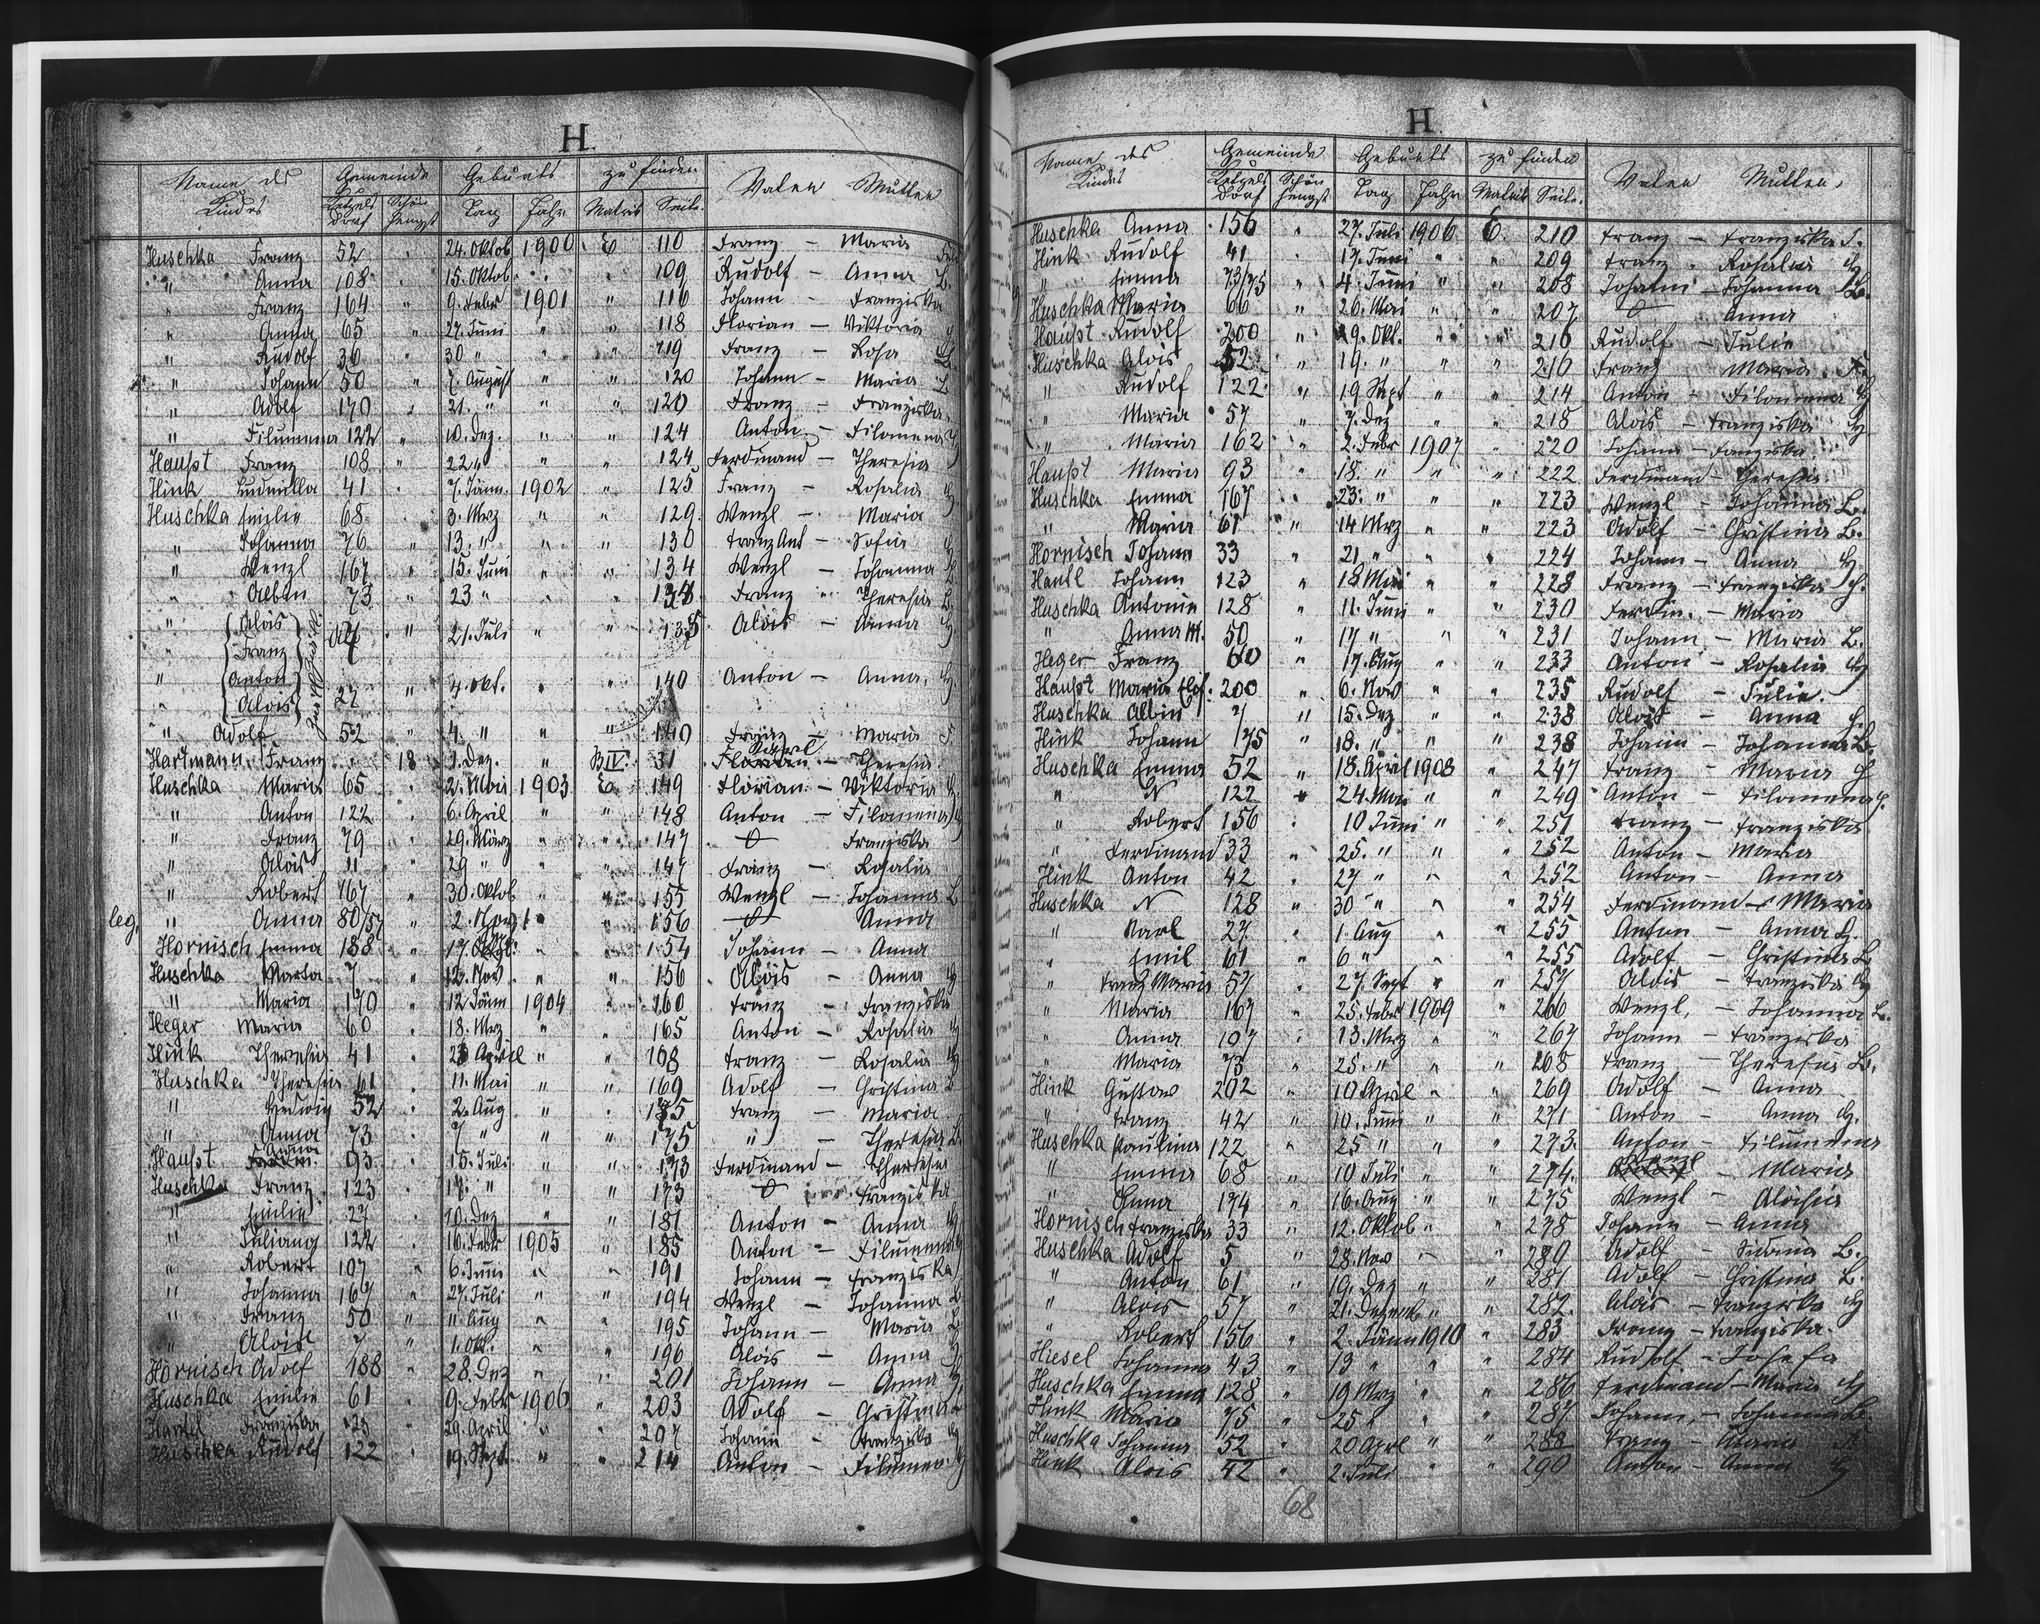 H.
Name des Kindes Gemeinde Geburts zu finden Vater Mutter
Ketzelsdorf Schönhengst Tag Jahr Matrik Seite
Huschka Franz 52 " 24. Oktob 1900 E 110 Franz — Maria
" Anna 108 " 15. Oktob. " " 109 Rudolf — Anna
" Franz 164 " 9. Febr 1901 " 116 Johann — Franziska
" Anna 65 " 27. Juni " " 118 Florian — Viktoria
" Rudolf 36 " 30 " " " 119 Franz — Rosa
" Johann 50 " 7. August " " 120 Johann — Maria
" Adolf 170 " 21. " " " 120 Franz — Franziska
" Filumena 122 " 10. Dez. " " 124 Anton — Filomena
Haupt Franz 108 " 22. " " " 124 Ferdinand — Theresia
Hink Ludmilla 41 " 7. Jänn. 1902 " 125 Franz — Rosalia
Huschka Emilie 68 " 3. Mrz " " 129 Wenzl — Maria
" Johanna 76 " 13. " " " 130 Franz Ant — Sofie
" Wenzl 167 " 15. Juni " " 134 Wenzl — Johanna
" Albin 73 " 23 " " " Franz — Theresia
" Alois " 21. Juli " " Alois — Anna
" Franz
" Anton " 4. Okt. " " 140 Anton — Anna
" Alois 27
" Adolf 52 " 4. " " " 140 Franz — Maria
Hartmann Franz 18 3. Dez. " B IV. 31 Karl — Theresia
Huschka Maria 65 " 2. Mai 1903 E 149 Florian — Viktoria
" Anton 122 " 6. April " " 148 Anton — Filomena
" Franz 79 " 29. März " " 147 O Franziska
" Alois 11 " 29 " " " 147 Franz — Rosalia
" Robert 167 " 30. Oktob " " 155 Wenzl — Johanna
leg. " Anna 80/57 " 2. Nov " " 156 O Anna
Hornisch Emma 188 " 17. " " 154 Johann — Anna
Huschka Marta 7 " 12. Nov " " 156 Alois — Anna
" Maria 170 " 12 Jänn 1904 " 160 Franz — Franziska
Heger Maria 60 " 18. Mrz " " 165 Anton — Rosalia
Hink Theresia 41 " April " " 168 Franz — Rosalia
Huschka Theresia 61 " 11. Mai " " 169 Adolf — Christina
" Hedwig 52 " 2. Aug " " Franz — Maria
" Anna 73 " 7 " " " 175 " — Theresia
Haupt Anna 93 " 15. Juli " " 173 Ferdinand — Theresia
Huschka Franz 123 " 17. " " " 173 O Franziska
" Emilie 27 " 10. Dez " " 181 Anton — Anna
" Juliana 122 " 16. Febr 1905 " 185 Anton — Filumena
" Robert 107 " 6. Juni " " 191 Johann — Franziska
" Johanna 167 " 27. Juli " " 194 Wenzl — Johanna
" Franz 50 " 11. Aug " " 195 Johann — Maria
" Alois 7 " 1. Okt. " " 196 Alois — Anna
Hornisch Adolf 188 " 28. Dez " " 201 Johann — Anna
Huschka Emilie 61 " 9. Febr 1906 " 203 Adolf — Christina
Hantel Franziska " 29. April " " 207 Johann — Franziska
Huschka Rudolf 122 " 19. Sept. " " 214 Anton — Filumena
H.
Name des Kindes Gemeinde Geburts zu finden Vater Mutter
Ketzelsdorf Schönhengst Tag Jahr Matrik Seite
Huschka Anna 156 " 27. Juli 1906 E. 210 Franz — Franziska
Hink Rudolf 41 " 17. Juni " " 209 Franz — Rosalia
" Emma 73/75 " 4. Juni " " 208 Johann — Johanna
Huschka Maria 66 " 26. Mai " " 207 O Anna
Haupt Rudolf 200 " 29. Okt. " " 216 Rudolf — Julie
Huschka Alois 52 " 19. " " " 216 Franz Maria
" Rudolf 122 " 19 Sept " " 214 Anton — Filomena
" Maria 57 " 7. Dez " " 218 Alois — Franziska
" Maria 162 " 2. Febr 1907 " 220 Johann — Franziska
Haupt Maria 93 " 18. " " " 222 Ferdinand — Theresia
Huschka Emma 167 " 23. " " " 223 Wenzl — Johanna L.
" Maria 61 " 14 Mrz " " 223 Adolf — Christina L.
Hornisch Johann 33 " 21. " " " 224 Johann — Anna
Hantl Johann 123 " 18 Mai " " 228 Franz — Franziska
Huschka Antonie 128 " 11. Juni " " 230 Ferdin. — Maria
" Anna M. 50 " 17 " " " 231 Johann — Maria L.
Heger Franz 60 " 17. Aug " " 233 Anton — Rosalia
Haupt Maria 200 " 6. Nov " " 235 Rudolf — Julie.
Huschka Albin 7 " 15. Dez " " 238 Alois — Anna
Hink Johann 175 " 18. " " " 238 Johann — Johanna
Huschka Emma 52 " 18. April 1908 " 247 Franz — Maria
" N 122 " 24. Mai " " 249 Anton — Filomena
" Robert 156 " 10 Juni " " 251 Franz — Franziska
" Ferdinand 33 " 25. " " " 252 Anton — Maria
Hink Anton 42 " 27 " " " 252 Anton — Anna
Huschka N 128 " 30 " " " 254 Ferdinand — Maria
" Karl 27 " 1. Aug " " 255 Anton — Anna
" Emil 61 " 6 " " " 255 Adolf — Christina L
" Franz Maria 57 " 27. Sept " " 257 Alois — Franziska
" Maria 167 " 25. Febr 1909 " 266 Wenzl — Johanna L.
" Anna 107 " 13. Mrz " " 267 Johann — Franziska
" Maria 73 " 25. " " " 268 Franz — Theresia L.
Hink Gustav 202 " 10 April " " 269 Adolf — Anna
" Franz 42 " 10. Juni " " 271 Anton — Anna
Huschka Paulina 122 " 25 " " " 273. Anton — Filumena
" Emma 68 " 10 Juli " " 274. Wenzl — Maria
" Anna 174 " 16. Aug " " 275 Wenzl — Aloisia
Hornisch Franziska 33 " 12. Oktob " " 278 Johann — Anna
Huschka Adolf 5 " 28. Nov " " 280 Adolf — Sidonia L.
" Anton 61 " 19. Dez " " 281 Adolf — Christina L.
" Alois 57 " 21. Dezemb " " 282. Alois — Franziska
" Robert 156 " 2. Jänn 1910 " 283 Franz — Franziska
Hiesel Johanna 43 " 13 " " " 284 Rudolf — Josefa
Huschka Emma 128 " 19 Mrz " " 286 Ferdinand — Maria
Hink Maria 75 " 25 " " " 287 Johann — Johanna
Huschka Johanna 52 " 20 Aprl " " 288 Franz — Maria
Hink Alois 42 " 2. Juli " " 290 Anton — Anna
68